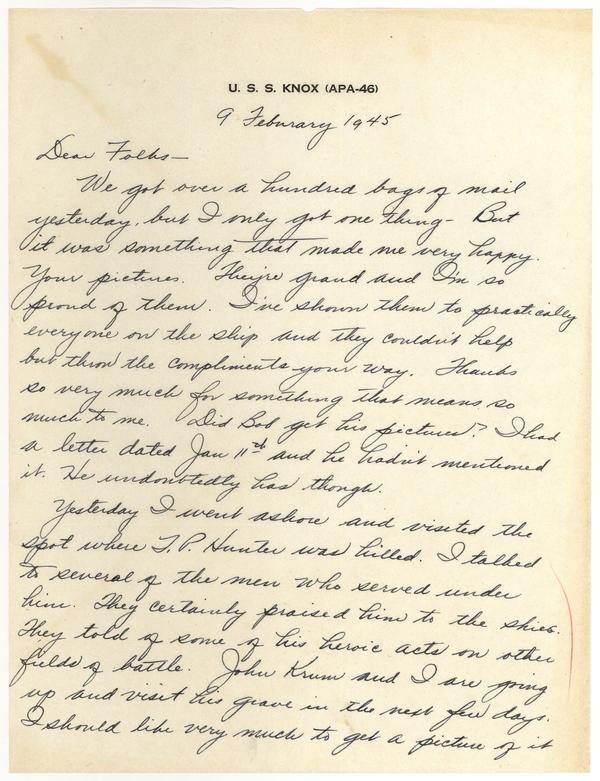 U. S. S. KNOX (APA-46)
9 Feburary 1945
Dear Folks—
We got over a hundred bags of mail
yesterday, but I only got one thing- But
it was something that made me very happy.
Your pictures. They're grand and I'm so
proud of them. I've shown them to practically
everyone on the ship and they couldn't help
but throw the compliments your way. Thanks
so very much for something that means so
much to me. Did Bob get his pictures? I had
a letter dated Jan 11th and he hadn't mentioned
it. He undoubtedly has though.
Yesterday I went ashore and visited the
spot where T. P. Hunter was killed. I talked
to several of the men who served under
him. They certainly praised him to the skies.
They told of some of his heroic acts on other
fields of battle. John Krum and I are going
up and visit his grave in the next few days.
I should like very much to get a picture of it